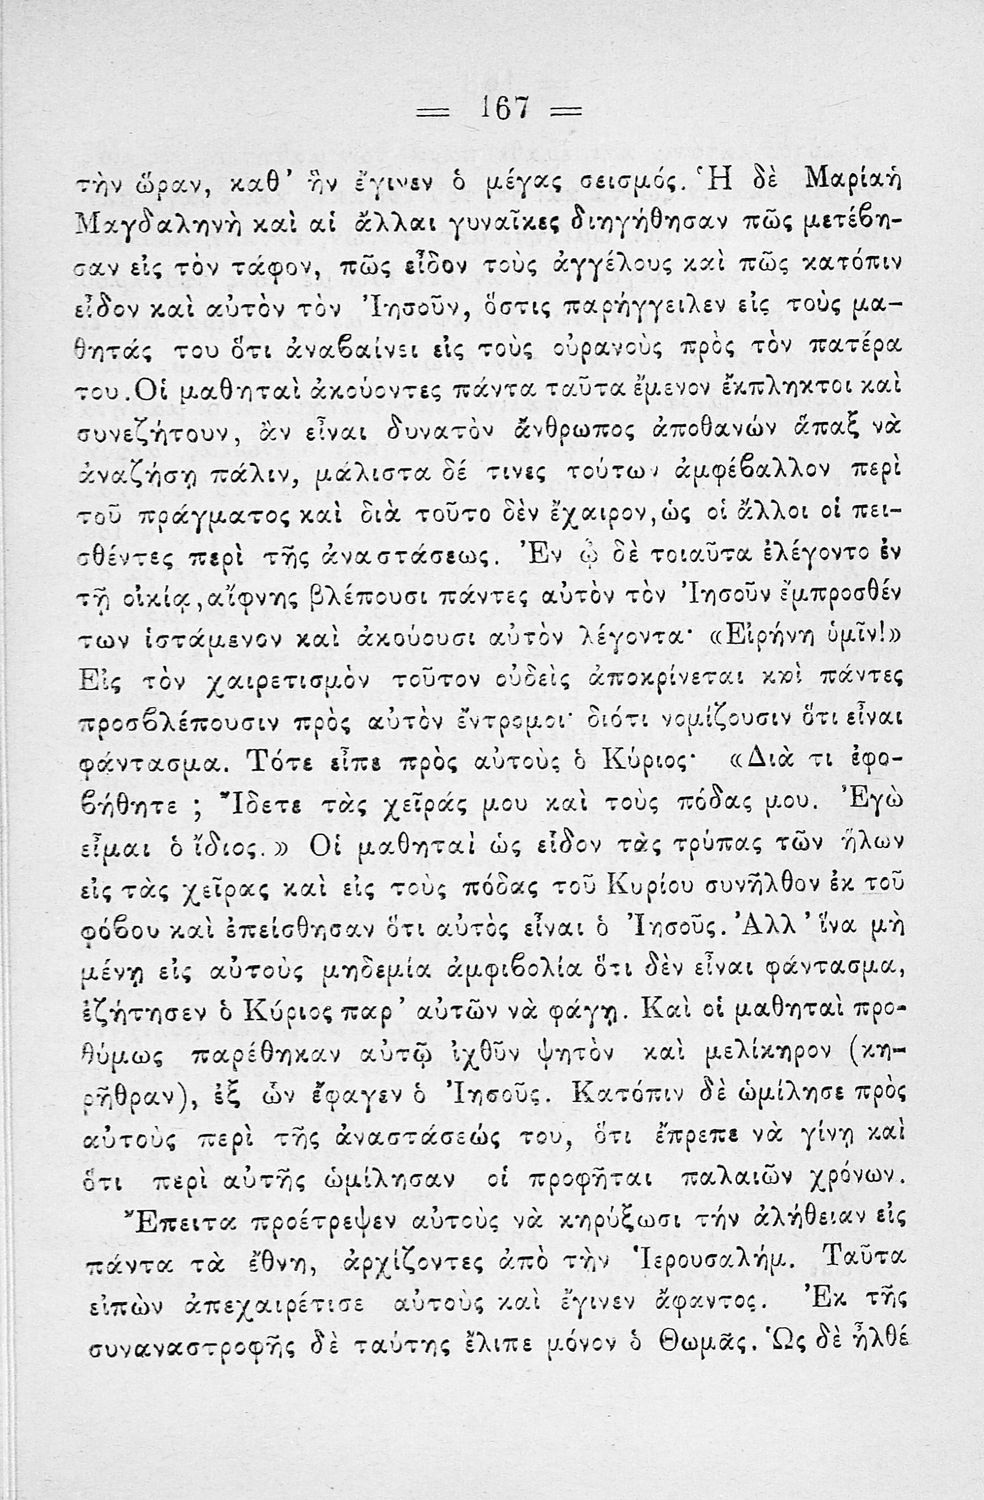 = 167 =
τὴν ὥραν, καθ’ ἣν ἔγινεν ὁ μέγας σεισμός. Ἡ δὲ Μαρίαἡ
Μαγδαληνὴ καὶ αἱ ἄλλαι γυναῖκες διηγήθησαν πῶς μετέβη-
σαν εἰς τὸν τάφον, πῶς εἶδον τοὺς ἀγγέλους καὶ πῶς κατόπιν
εἶδον καὶ αὐτὸν τὸν Ἰησοῦν, ὅστις παρήγγειλεν εἰς τοὺς μα-
θητάς του ὅτι ἀναβαίνει εἰς τοὺς οὐρανοὺς πρὸς τὸν πατέρα
του. Οἱ μαθηταὶ ἀκούοντες πάντα ταῦτα ἔμενον ἔκπληκτοι καὶ
συνεζήτουν, ἂν εἶναι δυνατὸν ἄνθρωπος ἀποθανών ἅπαξ νὰ
ἀναζήσῃ πάλιν, μάλιστα δέ τινες τούτων ἀμφέβαλλον περὶ
τοῦ πράγματος καὶ διὰ τοῦτο δὲν ἔχαιρον, ὡς οἱ ἄλλοι οἱ πει-
σθέντες περὶ τῆς ἀναστάσεως. Ἐν ᾧ δὲ τοιαῦτα ἐλέγοντο ἐν
τῇ οἰκίᾳ, αἴφνης βλέπουσι πάντες αὐτὸν τὸν Ἰησοῦν ἔμπροσθέν
των ἱστάμενον καὶ ἀκούουσι αὐτὸν λέγοντα· «Εἰρήνη ὑμῖν!»
Εἰς τὸν χαιρετισμὸν τοῦτον οὐδεὶς ἀποκρίνεται καὶ πάντες
προσβλέπουσιν πρὸς αὐτὸν ἔντρομοι· διότι νομίζουσιν ὅτι εἶναι
φάντασμα. Τότε εἶπε πρὸς αὐτοὺς ὁ Κύριος· «Διὰ τι ἐφο-
βήθητε ; Ἴδετε τὰς χεῖράς μου καὶ τοὺς πόδας μου. Ἐγὼ
εἶμαι ὁ ἴδιος.» Οἱ μαθηταὶ ὡς εἶδον τὰς τρύπας τῶν ἥλων
εἰς τὰς χεῖρας καὶ εἰς τοὺς πόδας τοῦ Κυρίου συνῆλθον ἐκ τοῦ
φόβου καὶ ἐπείσθησαν ὅτι αὐτὸς εἶναι ὁ Ἰησοῦς. Ἀλλ’ ἵνα μὴ
μένῃ εἰς αὐτοὺς μηδεμία ἀμφιβολία ὅτι δὲν εἶναι φάντασμα,
ἐζήτησεν ὁ Κύριος παρ’ αὐτῶν νὰ φάγῃ. Καὶ οἱ μαθηταὶ προ-
θύμως παρέθηκαν αὐτῷ ἰχθῦν ψητὸν καὶ μελίκηρον (κη-
ρῆθραν), ἐξ ὧν ἔφαγεν ὁ Ἰησοῦς. Κατόπιν δὲ ὡμίλησε πρὸς
αὐτοὺς περὶ τῆς ἀναστάσεώς του, ὅτι ἔπρεπε νὰ γίνῃ καὶ
ὅτι περὶ αὐτῆς ὡμίλησαν οἱ προφῆται παλαιῶν χρόνων.
Ἔπειτα προέτρεψεν αὐτοὺς νὰ κηρύξωσι τήν ἀλήθειαν εἰς
πάντα τὰ ἔθνη, ἀρχίζοντες ἀπὸ τὴν Ἱερουσαλήμ. Ταῦτα
εἰπὼν ἀπεχαιρέτισε αὐτοὺς καὶ ἔγινεν ἄφαντος. Ἐκ τῆς
συναναστροφῆς δὲ ταύτης ἔλιπε μόνον ὁ Θωμᾶς. Ὡς δὲ ἦλθέ